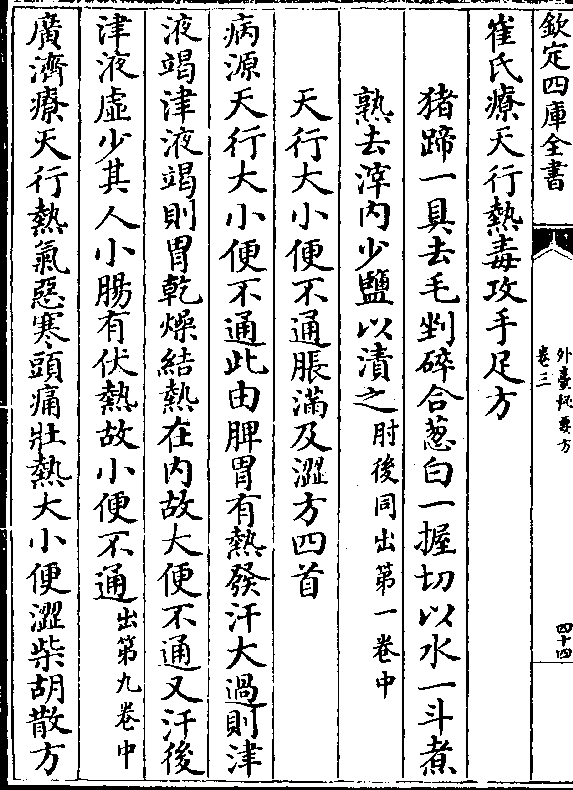 欽定四庫全書
外臺秘要方
卷三
四十四
崔氏療天行熱毒攻手足方
猪蹄一具去毛剉碎合葱白一握切以水一斗煮
熟去滓内少鹽以漬之肘後同出第一卷中
天行大小便不通脹滿及澀方四首
病源天行大小便不通此由脾胃有熱發汗大過則津
液竭津液竭則胃乾燥結熱在内故大便不通又汗後
津液虚少其人小腸有伏熱故小便不通出第九卷中
廣濟療天行熱氣惡寒頭痛壯熱大小便澀柴胡散方